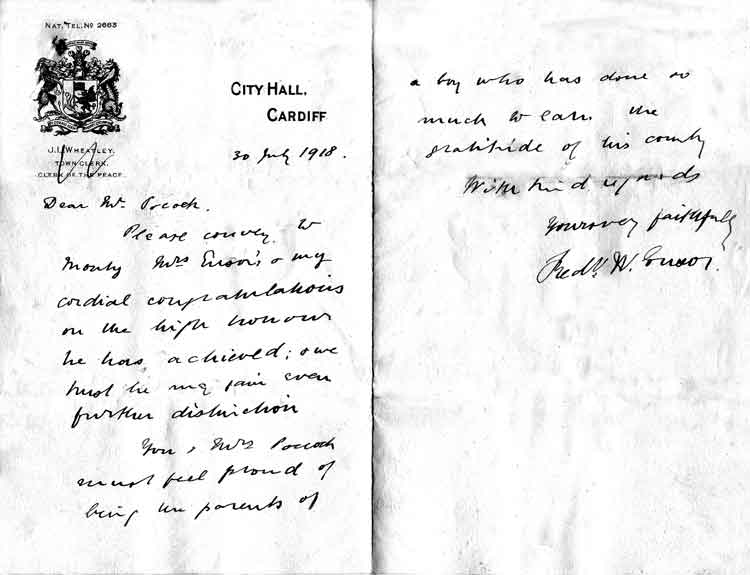 NAT. TEL. Nº 2663
J. L. WHEATLEY.
TOWN CLERK.
CLERK OF THE PEACE.
CITY HALL,
CARDIFF
30 July 1918.
Dear Mr. Pocock.
Please convey to
Monty Mrs Ensor's & my
cordial congratulations
on the high honour
he has achieved; & we
trust he may gain even
further distinction
You & Mrs Pocock
must feel proud of
being the parents of
a boy who has done so
much to earn the
gratitude of his country
With kind regards
Yours very faithfully
Fredk W. Ensor.